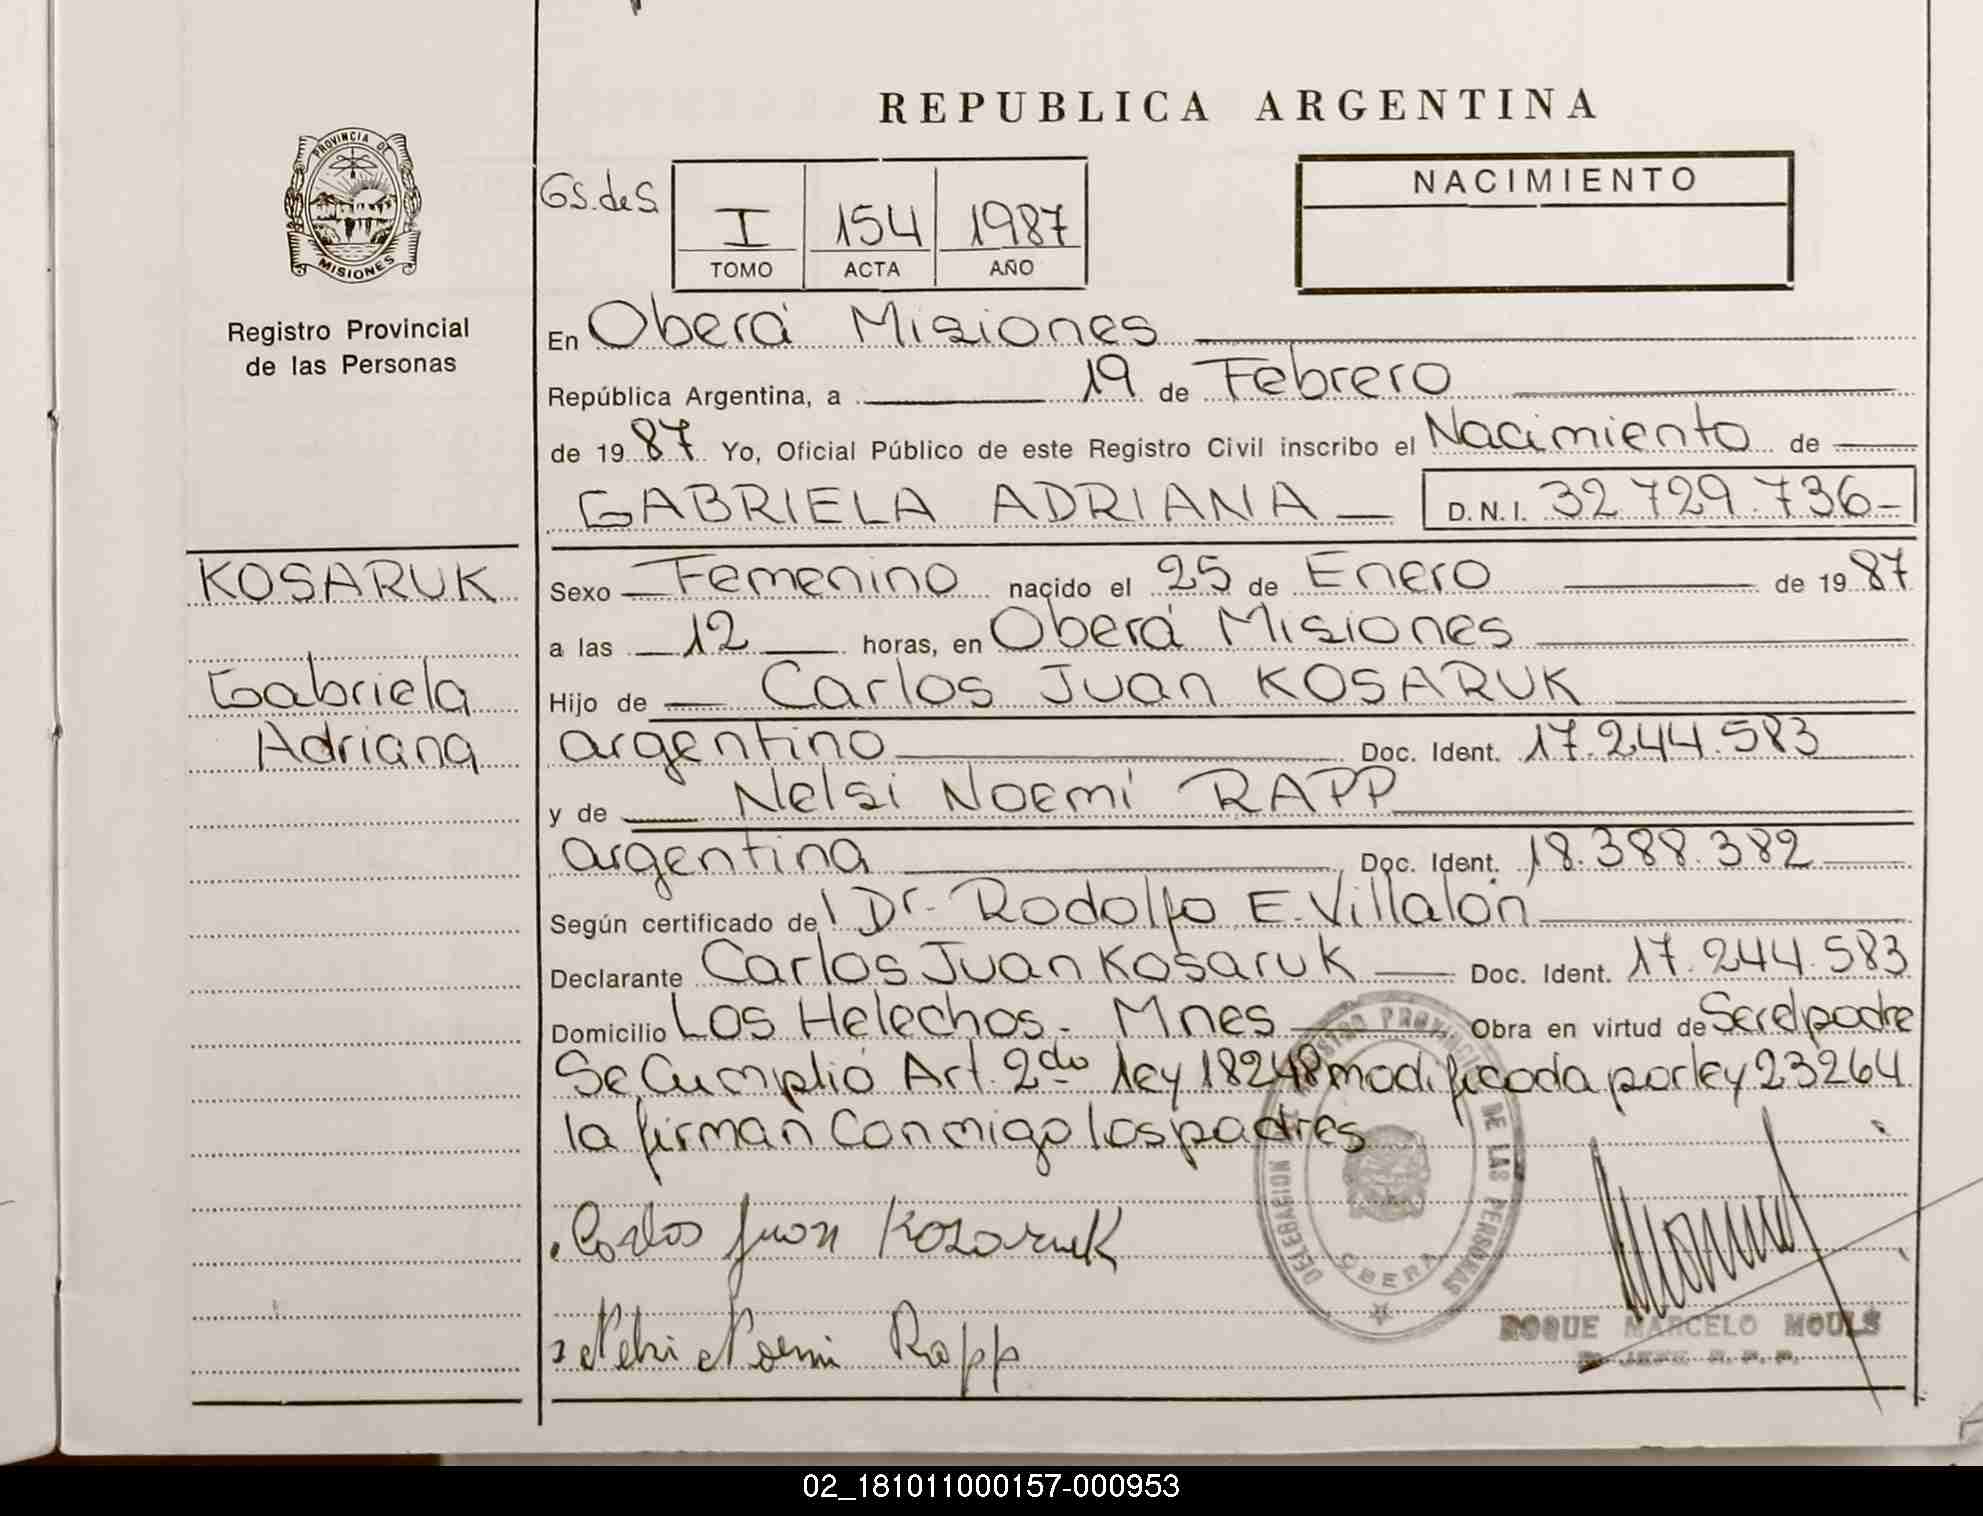 REPUBLICA ARGENTINA
PROVINCIA DE
MISIONES
Registro Provincial
de las Personas
GS. de S.
I 154 1987
TOMO ACTA AÑO
NACIMIENTO
En Oberá Misiones
República Argentina, a 19 de Febrero
de 1987 Yo, Oficial Público de este Registro Civil inscribo el Nacimiento de
GABRIELA ADRIANA D.N.I. 32 729.736-
KOSARUK
Gabriela
Adriana
Sexo Femenino nacido el 25 de Enero de 1987
a las 12 horas, en Oberá Misiones
Hijo de Carlos Juan KOSARUK
argentino Doc. Ident. 17.244.583
y de Nelsi Noemí RAPP
argentina Doc. Ident. 18.388.382
Según certificado del Dr. Rodolfo E. Villalón
Declarante Carlos Juan Kosaruk Doc. Ident. 17.244.583
Domicilio Los Helechos - Mnes Obra en virtud de Ser el padre
Se Cumplió Art. 2do ley 18248 modificada por ley 23264
la firman Conmigo los padres
DELEGACION REGISTRO PROVINCIAL DE LAS PERSONAS
OBERA
Carlos Juan Kozaruk
Nelsi Noemi Rapp
ROQUE MARCELO MOULS
02_181011000157-000953